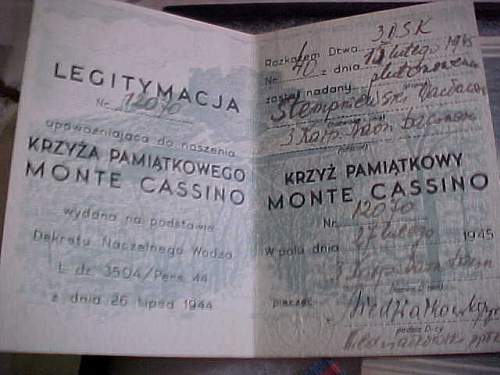 LEGITYMACJA
Nr. 12070
upoważniająca do noszenia
KRZYŻA PAMIĄTKOWEGO
MONTE CASSINO
wydana na podstawie
Dekretu Naczelnego Wodza
L. dz. 3504/Pers. 44
z dnia 26 lipca 1944
Rozkazem Dtwa. 3 DSK
Nr. 40 z dnia lutego 1945
został nadany plutonowemu
Stempniewski Wacław
3 Karp. baon
KRZYŻ PAMIĄTKOWY
MONTE CASSINO
Nr. 12070
W polu dnia 27 lutego 1945
3 Karp. baon
pieczęć
podpis D-cy